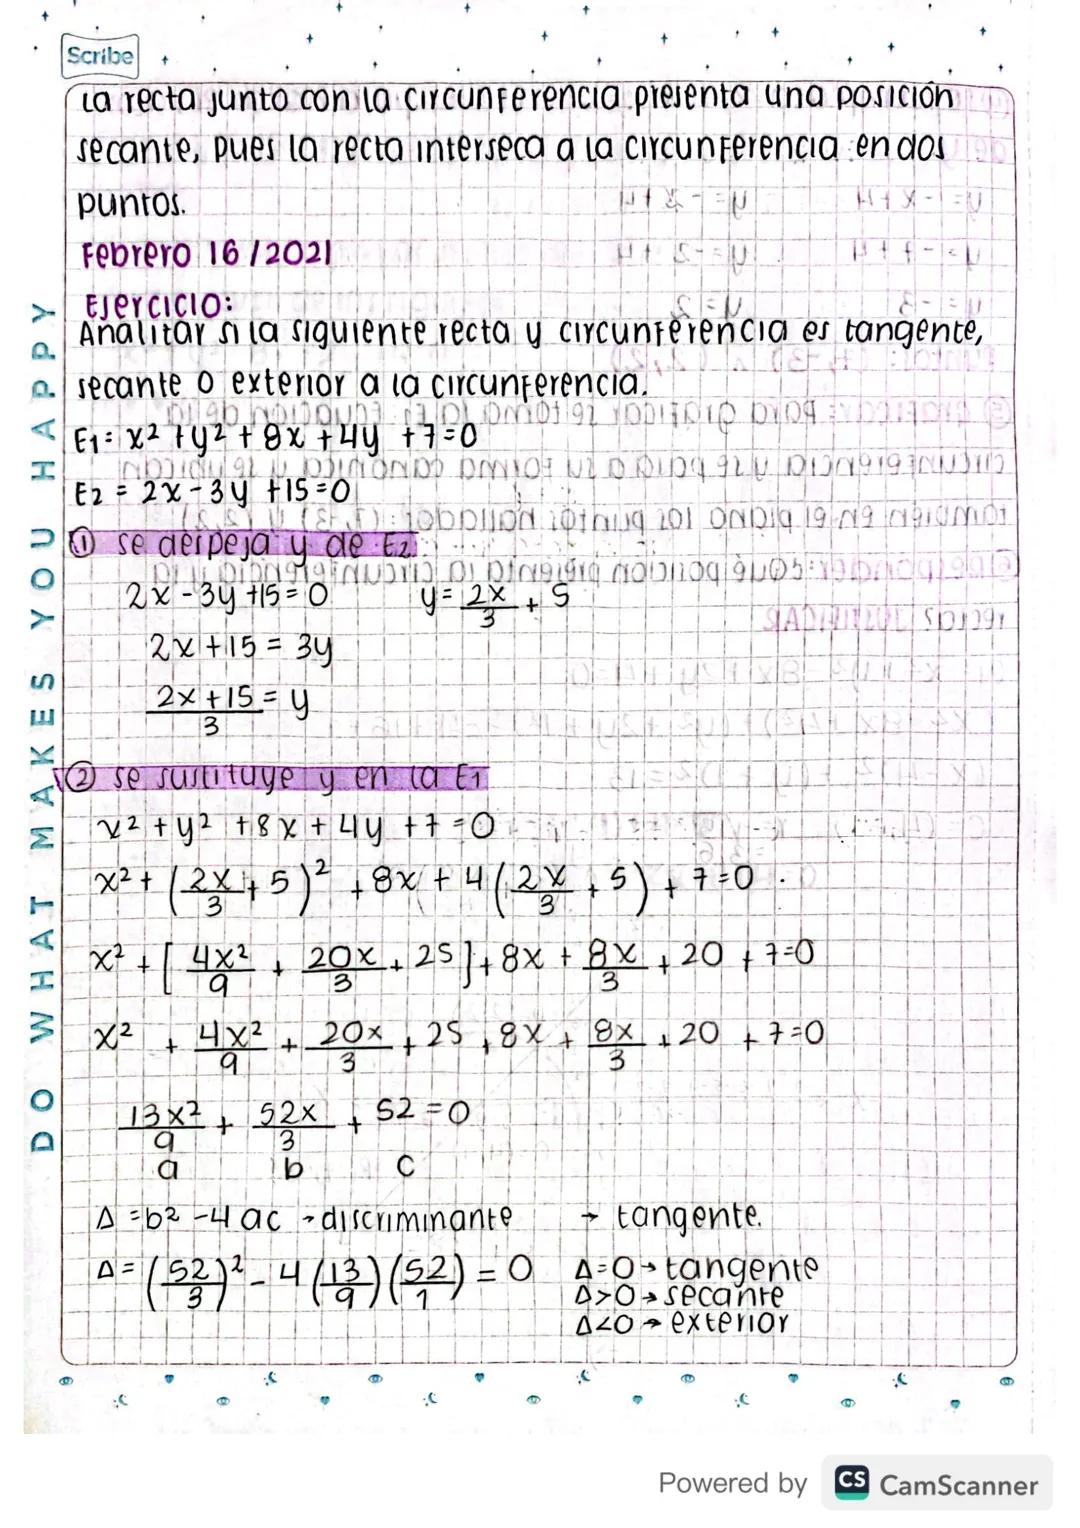 Scribe
La recta junto con la circunferencia presenta una posición
secante, pues la recta interseca a la circunferencia en dos
puntos.
Febrero 16/2021
Ejercicio:
Analizar si la siguiente recta y circunferencia es tangente,
secante o exterior a la circunferencia.
E1: x² + y² + 8x + 4y + 7 = 0
E2 = 2x - 3y + 15 = 0
① se despeja y de E2:
2x - 3y + 15 = 0 y = 2x/3 + 5
2x + 15 = 3y
2x + 15/3 = y
② se sustituye y en la E1
x² + y² + 8x + 4y + 7 = 0
x² + (2x/3 + 5)² + 8x + 4(2x/3 + 5) + 7 = 0
x² + [4x²/9 + 20x/3 + 25] + 8x + 8x/3 + 20 + 7 = 0
x² + 4x²/9 + 20x/3 + 25 + 8x + 8x/3 + 20 + 7 = 0
13x²/9 + 52x/3 + 52 = 0
a b c
Δ = b² - 4ac → discriminante → tangente.
Δ = (52/3)² - 4(13/9)(52/1) = 0 Δ=0 → tangente
Δ>0 → secante
Δ<0 → exterior
DO WHAT MAKES YOU HAPPY
Powered by CS CamScanner